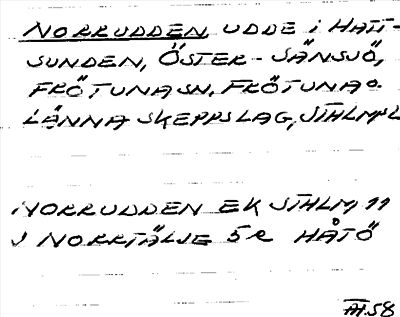 NORRUDDEN, UDDE i HATT-
SUNDEN, ÖSTER-SÄNSJÖ,
FRÖTUNA SN. FRÖTUNA O.
LÄNNA SKEPPSLAG, STHLMS L
NORRUDDEN EK STHLM 11
J NORRTÄLJE 5R HÅTÖ
58